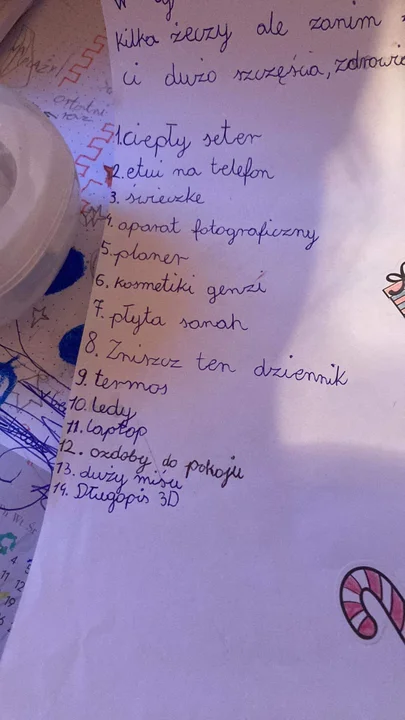 kilka żeczy ale zanim
ci dużo szczęścia, zdrowie
1. ciepły seter
2. etui na telefon
3. świeczke
4. aparat fotograficzny
5. planer
6. kosmetiki genzi
7. płyta sanah
8. Zniszcz ten dziennik
9. termos
10. ledy
11. laptop
12. ozdoby do pokoju
13. duży misiu
14. Długopis 3D